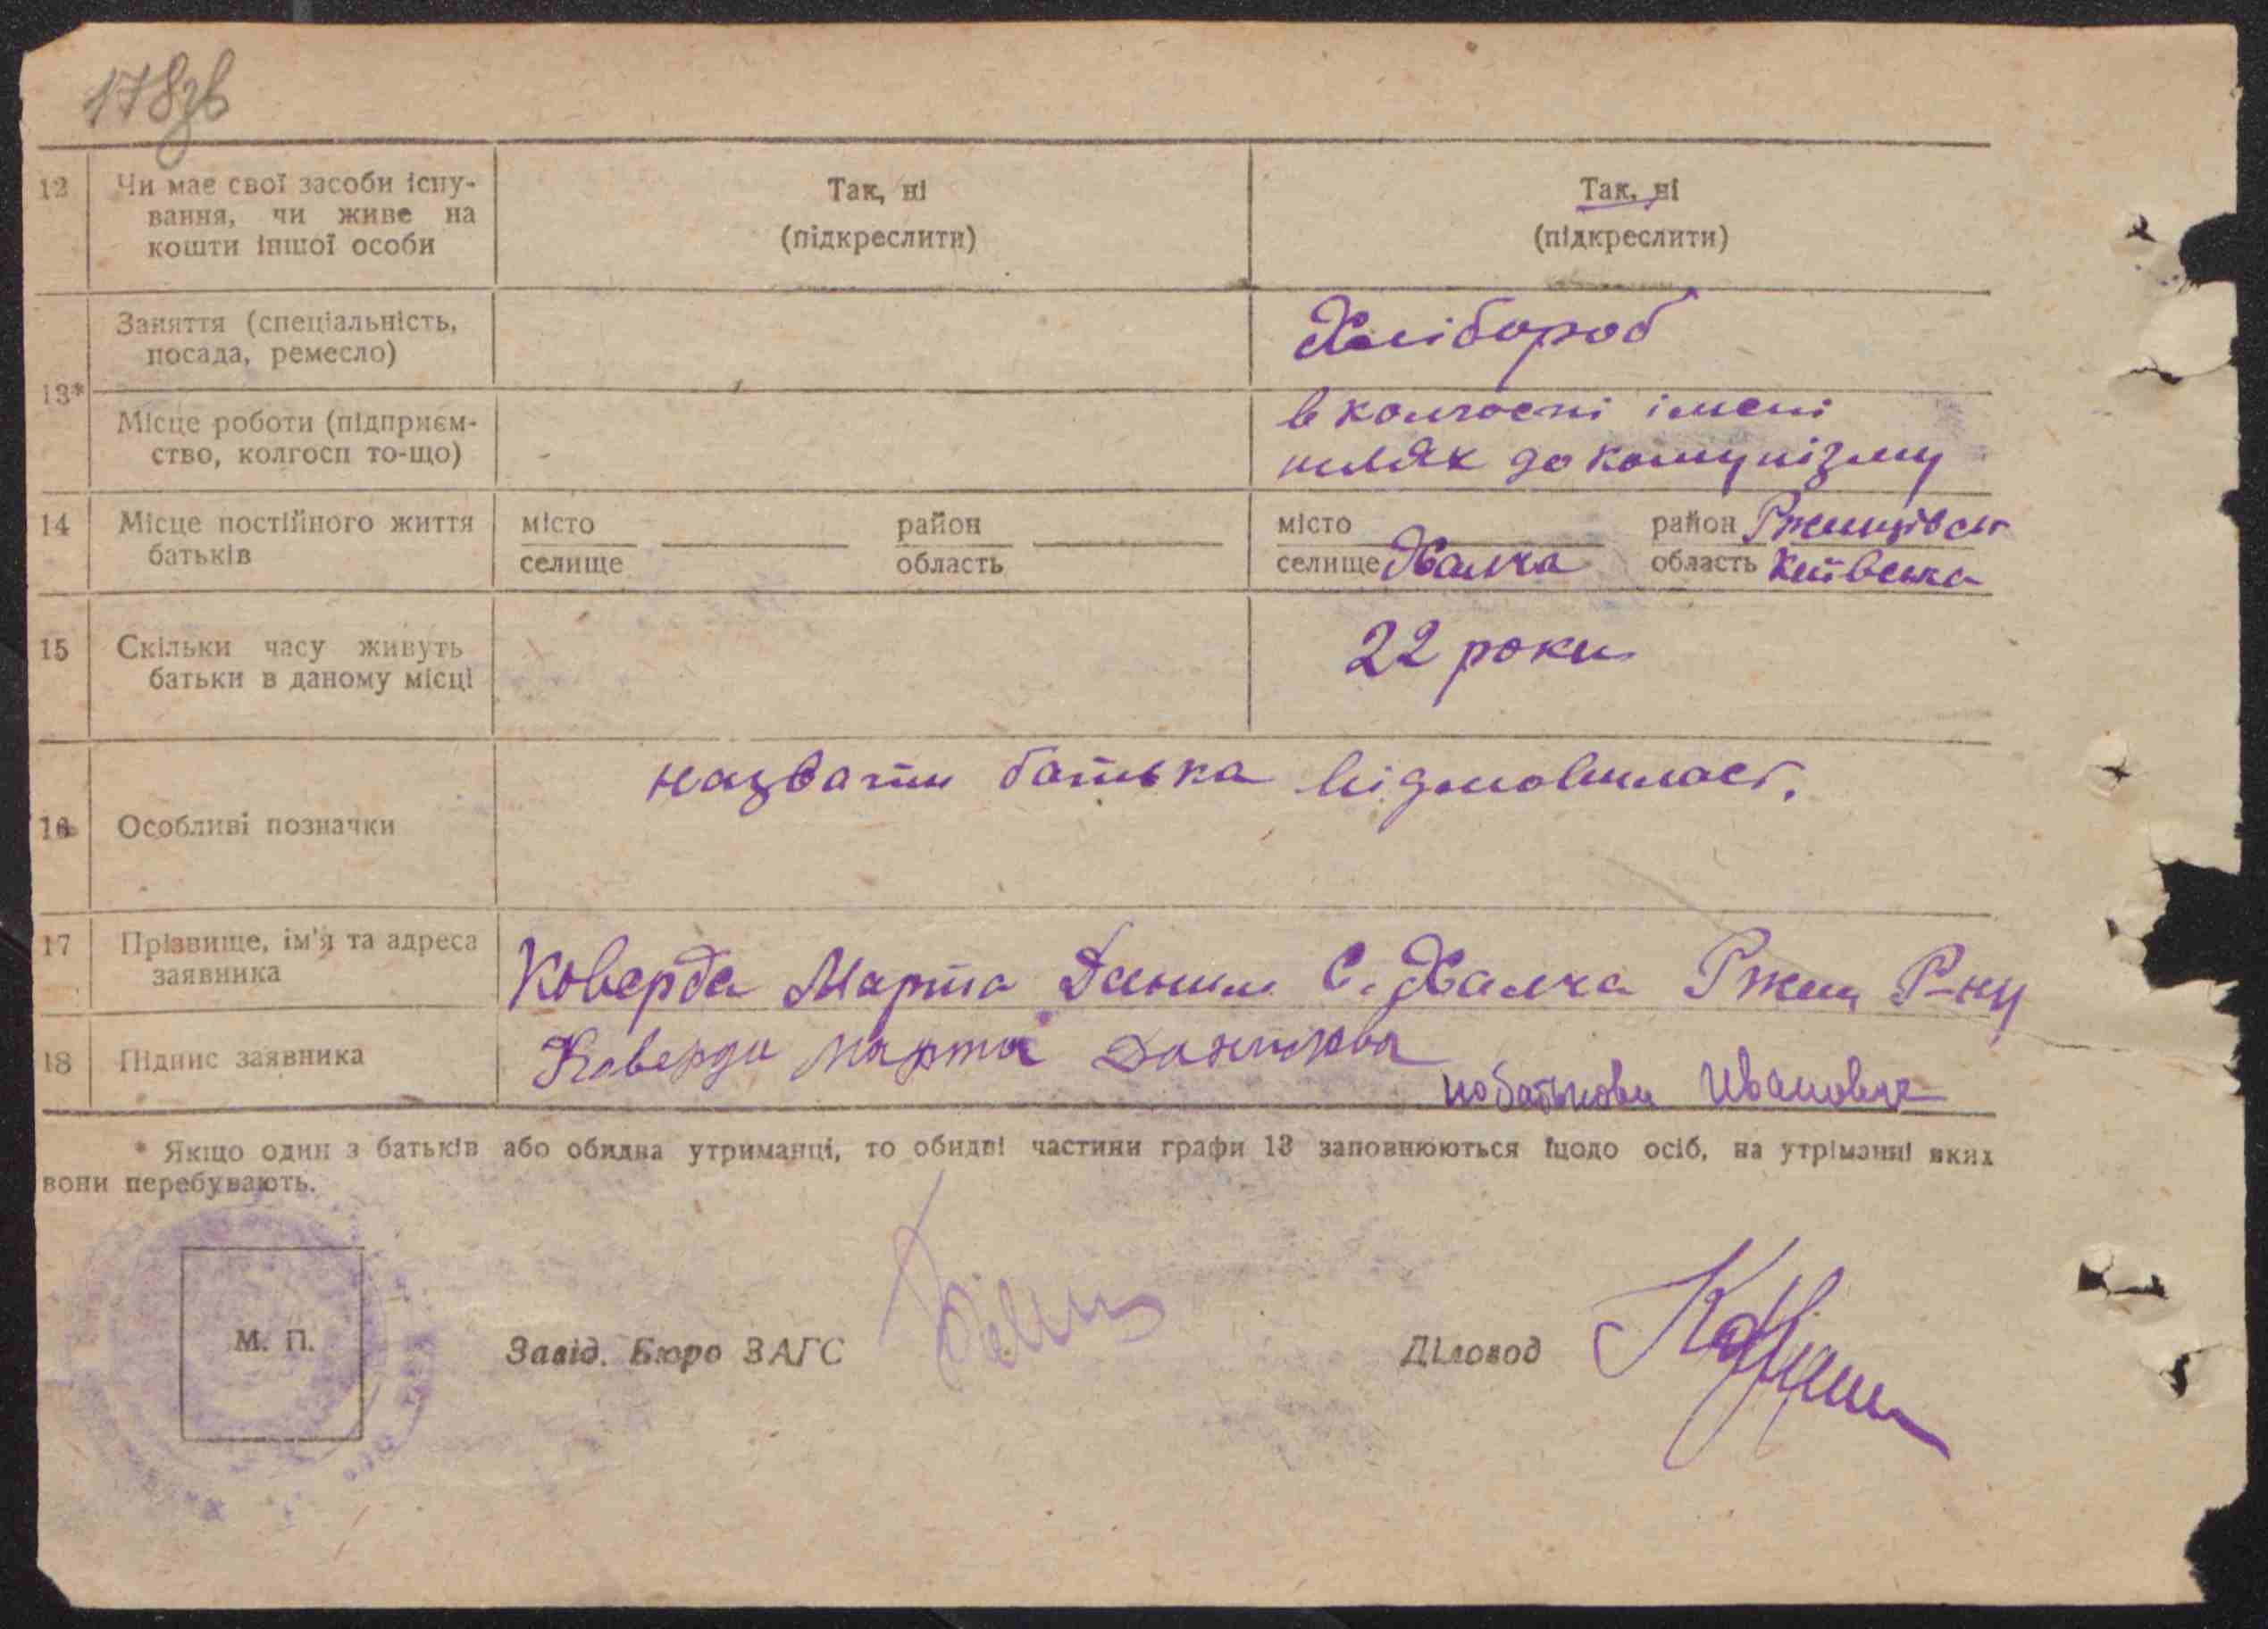 178зв
12 Чи має свої засоби існу-
вання, чи живе на
кошти іншої особи
Так, ні
(підкреслити)
Так, ні
(підкреслити)
13*
Заняття (спеціальність,
посада, ремесло)
Хлібороб
Місце роботи (підприєм-
ство, колгосп то-що)
в колгоспі імені
шлях до комунізму
14 Місце постійного життя
батьків
місто
селище
район
область
місто
селище Халча
район Ржищівськ
область Київська
15 Скільки часу живуть
батьки в даному місці
22 роки
16 Особливі позначки
назвати батька відмовилась.
17 Прізвище, ім'я та адреса
заявника
Коверда Марта Данил С. Халча Ржищ Р-ну
18 Підпис заявника
Коверда Марта
побатькови Ивановна
* Якщо один з батьків або обидва утриманці, то обидві частини графи 13 заповнюються щодо осіб, на утріманні яких
вони перебувають.
М. П.
Завід. Бюро ЗАГС
Діловод